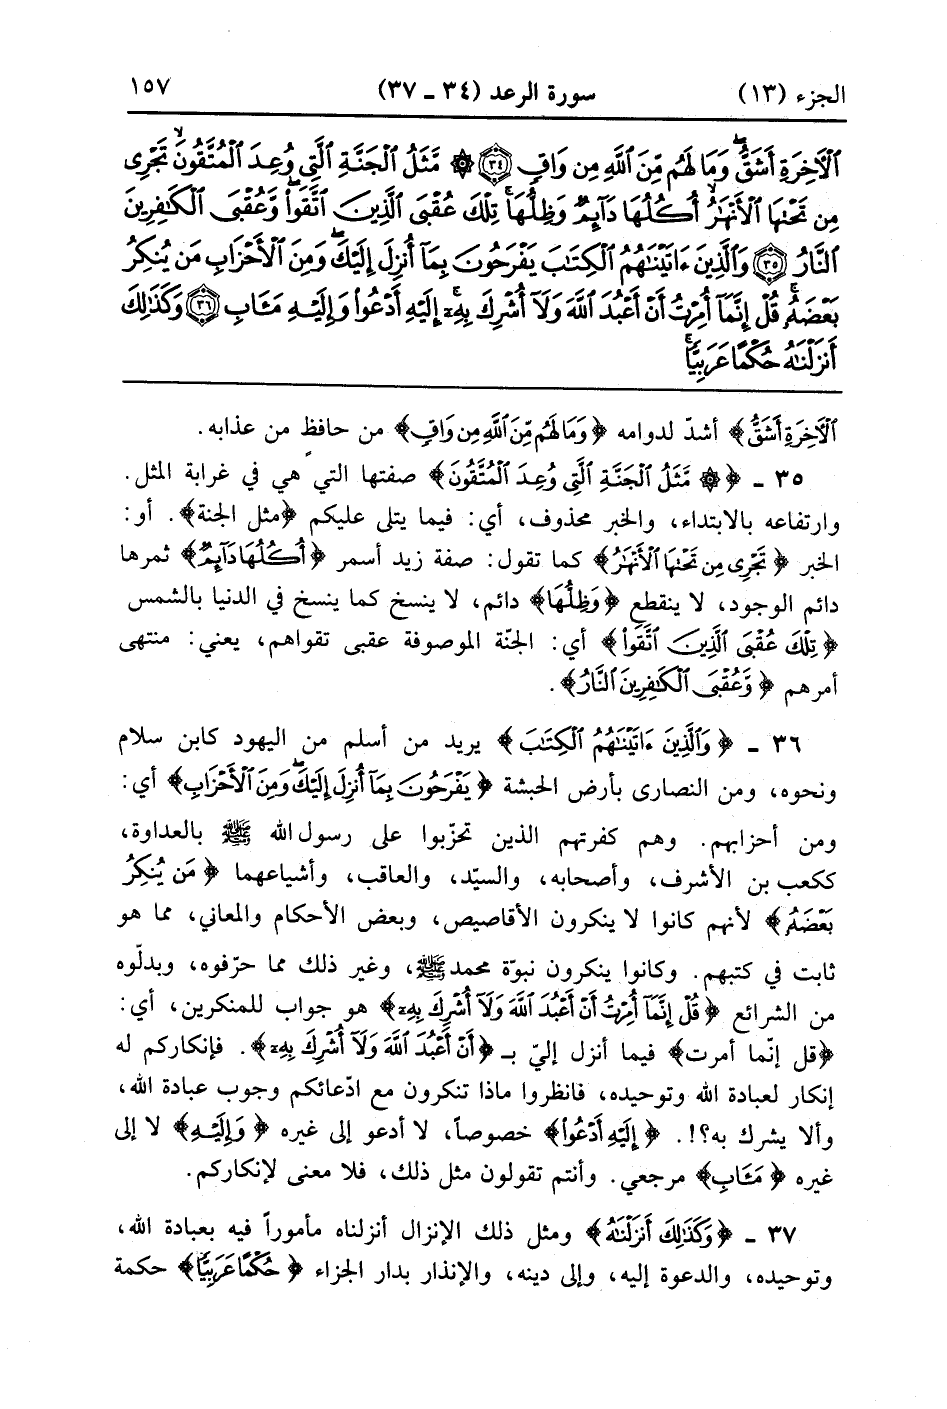 الجزء (١٣) سورة الرعد (٣٤ - ٣٧) ١٥٧
ٱلۡأٓخِرَةِ أَشَقُّۖ وَمَا لَهُم مِّنَ ٱللَّهِ مِن وَاقٖ ٣٤ ۞ مَّثَلُ ٱلۡجَنَّةِ ٱلَّتِي وُعِدَ ٱلۡمُتَّقُونَۖ تَجۡرِي
مِن تَحۡتِهَا ٱلۡأَنۡهَٰرُۖ أُكُلُهَا دَآئِمٞ وَظِلُّهَاۚ تِلۡكَ عُقۡبَى ٱلَّذِينَ ٱتَّقَواْۖ وَّعُقۡبَى ٱلۡكَٰفِرِينَ
ٱلنَّارُ ٣٥ وَٱلَّذِينَ ءَاتَيۡنَٰهُمُ ٱلۡكِتَٰبَ يَفۡرَحُونَ بِمَآ أُنزِلَ إِلَيۡكَۖ وَمِنَ ٱلۡأَحۡزَابِ مَن يُنكِرُ
بَعۡضَهُۥۚ قُلۡ إِنَّمَآ أُمِرۡتُ أَنۡ أَعۡبُدَ ٱللَّهَ وَلَآ أُشۡرِكَ بِهِۦٓۚ إِلَيۡهِ أَدۡعُواْ وَإِلَيۡهِ مَـَٔابِ ٣٦ وَكَذَٰلِكَ
أَنزَلۡنَٰهُ حُكۡمًا عَرَبِيّٗاۚ
ٱلۡأٓخِرَةِ أَشَقُّ﴾ أشدّ لدوامه ﴿وَمَا لَهُم مِّنَ ٱللَّهِ مِن وَاقٖ﴾ من حافظٍ من عذابه.
٣٥ - ﴿۞ مَّثَلُ ٱلۡجَنَّةِ ٱلَّتِي وُعِدَ ٱلۡمُتَّقُونَ﴾ صفتها التي هي في غرابة المثل.
وارتفاعه بالابتداء، والخبر محذوف، أي: فيما يتلى عليكم ﴿مثل الجنة﴾. أو:
الخبر ﴿تَجۡرِي مِن تَحۡتِهَا ٱلۡأَنۡهَٰرُ﴾ كما تقول: صفة زيد أسمر ﴿أُكُلُهَا دَآئِمٞ﴾ ثمرها
دائم الوجود، لا ينقطع ﴿وَظِلُّهَا﴾ دائم، لا ينسخ كما ينسخ في الدنيا بالشمس
﴿تِلۡكَ عُقۡبَى ٱلَّذِينَ ٱتَّقَواْ﴾ أي: الجنّة الموصوفة عقبى تقواهم، يعني: منتهى
أمرهم ﴿وَّعُقۡبَى ٱلۡكَٰفِرِينَ ٱلنَّارُ﴾.
٣٦ - ﴿وَٱلَّذِينَ ءَاتَيۡنَٰهُمُ ٱلۡكِتَٰبَ﴾ يريد من أسلم من اليهود كابن سلام
ونحوه، ومن النصارى بأرض الحبشة ﴿يَفۡرَحُونَ بِمَآ أُنزِلَ إِلَيۡكَۖ وَمِنَ ٱلۡأَحۡزَابِ﴾ أي:
ومن أحزابهم. وهم كفرتهم الذين تحزّبوا على رسول الله ﷺ بالعداوة،
ككعب بن الأشرف، وأصحابه، والسيّد، والعاقب، وأشياعهما ﴿مَن يُنكِرُ
بَعۡضَهُۥ﴾ لأنهم كانوا لا ينكرون الأقاصيص، وبعض الأحكام والمعاني، مما هو
ثابت في كتبهم. وكانوا ينكرون نبوّة محمد ﷺ، وغير ذلك مما حرّفوه، وبدلّوه
من الشرائع ﴿قُلۡ إِنَّمَآ أُمِرۡتُ أَنۡ أَعۡبُدَ ٱللَّهَ وَلَآ أُشۡرِكَ بِهِۦٓ﴾ هو جواب للمنكرين، أي:
﴿قل إنّما أمرت﴾ فيما أنزل إليّ بـ ﴿أَنۡ أَعۡبُدَ ٱللَّهَ وَلَآ أُشۡرِكَ بِهِۦٓ﴾. فإنكاركم له
إنكار لعبادة الله وتوحيده، فانظروا ماذا تنكرون مع ادّعائكم وجوب عبادة الله،
وألا يشرك به؟!. ﴿إِلَيۡهِ أَدۡعُواْ﴾ خصوصاً، لا أدعو إلى غيره ﴿وَإِلَيۡهِ﴾ لا إلى
غيره ﴿مَـَٔابِ﴾ مرجعي. وأنتم تقولون مثل ذلك، فلا معنى لإنكاركم.
٣٧ - ﴿وَكَذَٰلِكَ أَنزَلۡنَٰهُ﴾ ومثل ذلك الإنزال أنزلناه مأموراً فيه بعبادة الله،
وتوحيده، والدعوة إليه، وإلى دينه، والإنذار بدار الجزاء ﴿حُكۡمًا عَرَبِيّٗا﴾ حكمة